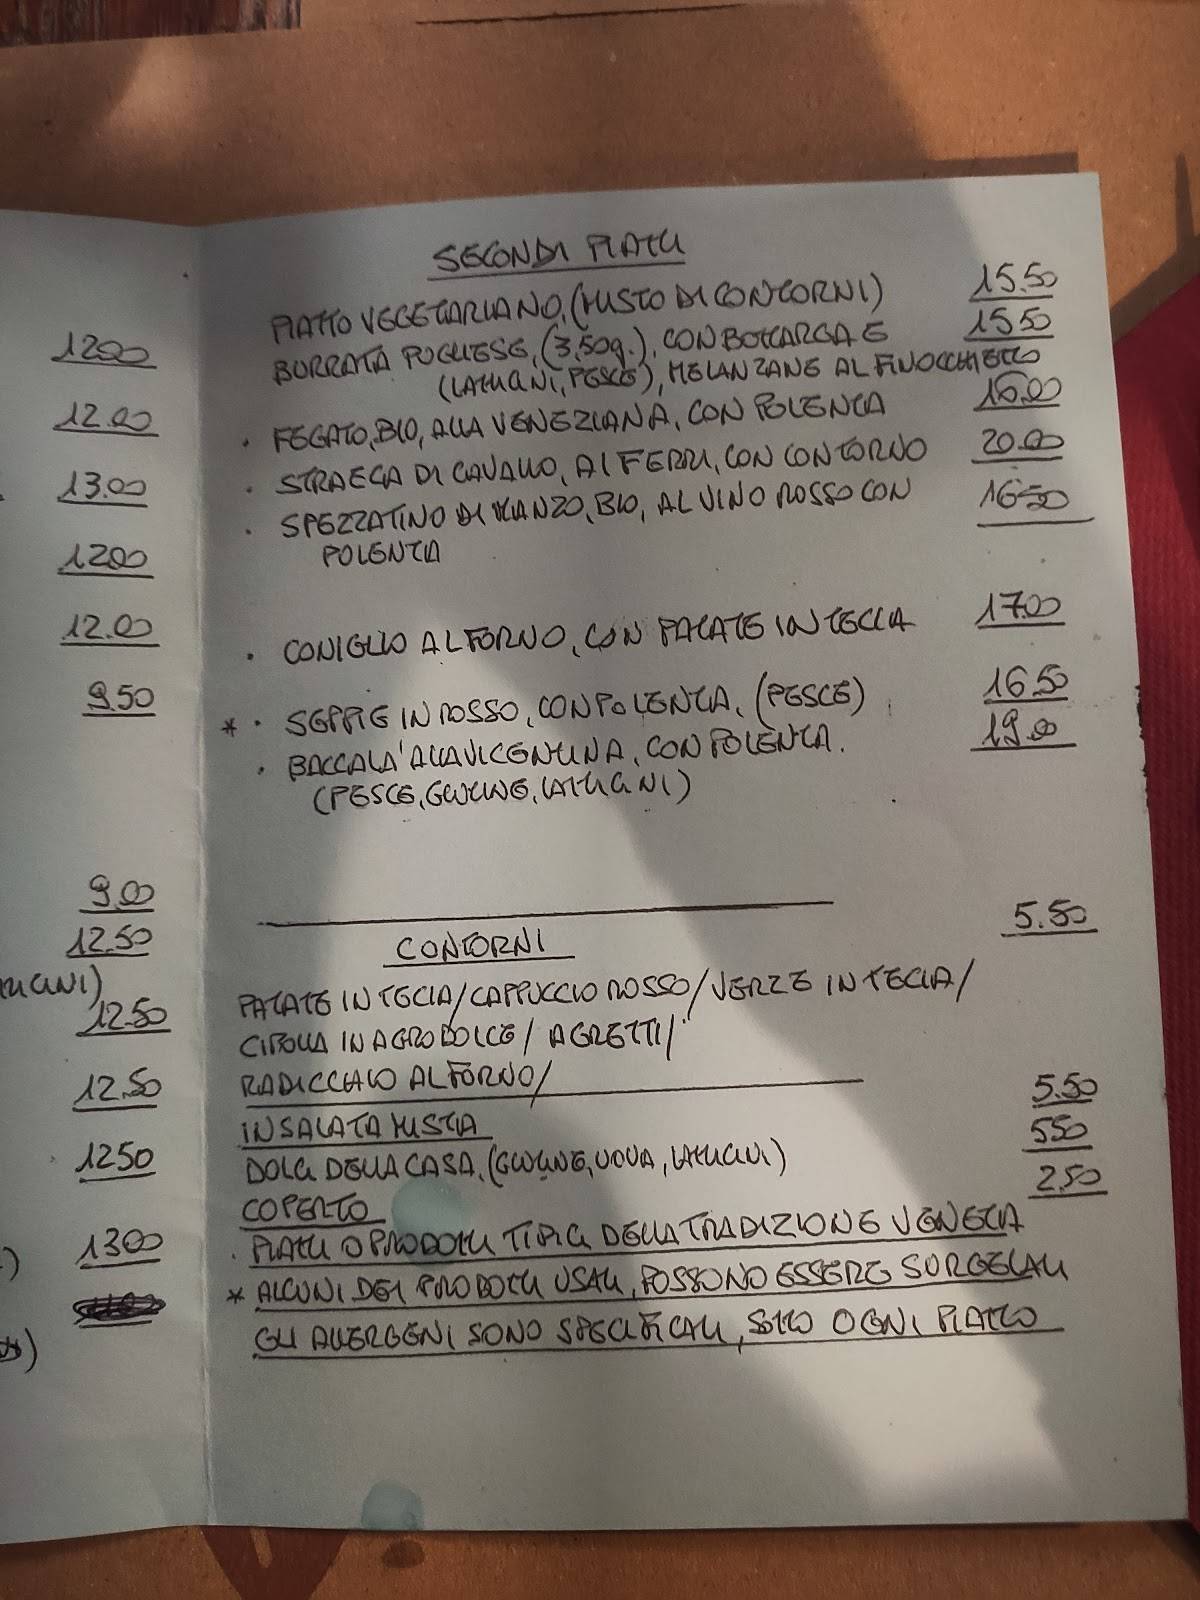 12.00
12.00
13.00
12.00
12.00
9.50
9.00
12.50
12.50
12.50
12.50
13.00
SECONDI PIATTI
PIATTO VEGETARIANO, (MISTO DI CONTORNI) 15.50
BURRATA PUGLIESE, (3,50g.), CON BOTTARGA E 15.50
(LATTICINI, PESCE), MELANZANE AL FINOCCHIETTO
· FEGATO, BIO, ALLA VENEZIANA, CON POLENTA 16.00
· STRAECA DI CAVALLO, AI FERRI, CON CONTORNO 20.00
· SPEZZATINO DI MANZO, BIO, AL VINO ROSSO CON 16.50
POLENTA
· CONIGLIO AL FORNO, CON PATATE IN TECIA 17.00
* · SEPPIE IN ROSSO, CON POLENTA, (PESCE) 16.50
· BACCALA' ALLA VICENTINA, CON POLENTA. 19.00
(PESCE, GLUTINE, LATTICINI)
CONTORNI 5.50
PATATE IN TECIA/CAPPUCCIO ROSSO/VERZE IN TECIA/
CIPOLLA IN AGRODOLCE/ AGRETTI/
RADICCHIO AL FORNO/
INSALATA MISTA 5.50
DOLCI DELLA CASA, (GLUTINE, UOVA, LATTICINI) 5.50
COPERTO 2.50
· PIATTI O PRODOTTI TIPICI DELLA TRADIZIONE VENETA
* ALCUNI DEI PRODOTTI USATI, POSSONO ESSERE SURGELATI
GLI ALLERGENI SONO SPECIFICATI, SOTTO OGNI PIATTO